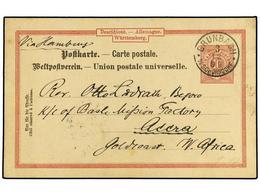 Deutschland. - Allemagne.
Württemberg.
Via Hamburg
Postkarte. - Carte postale.
Weltpostverein. - Union postale universelle.
Rev. Otto
c/o of Basle Mission Factory
Accra
Goldcoast, W. Africa